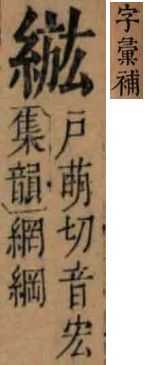 字彙補
戶萌切音宏
集韻網綱